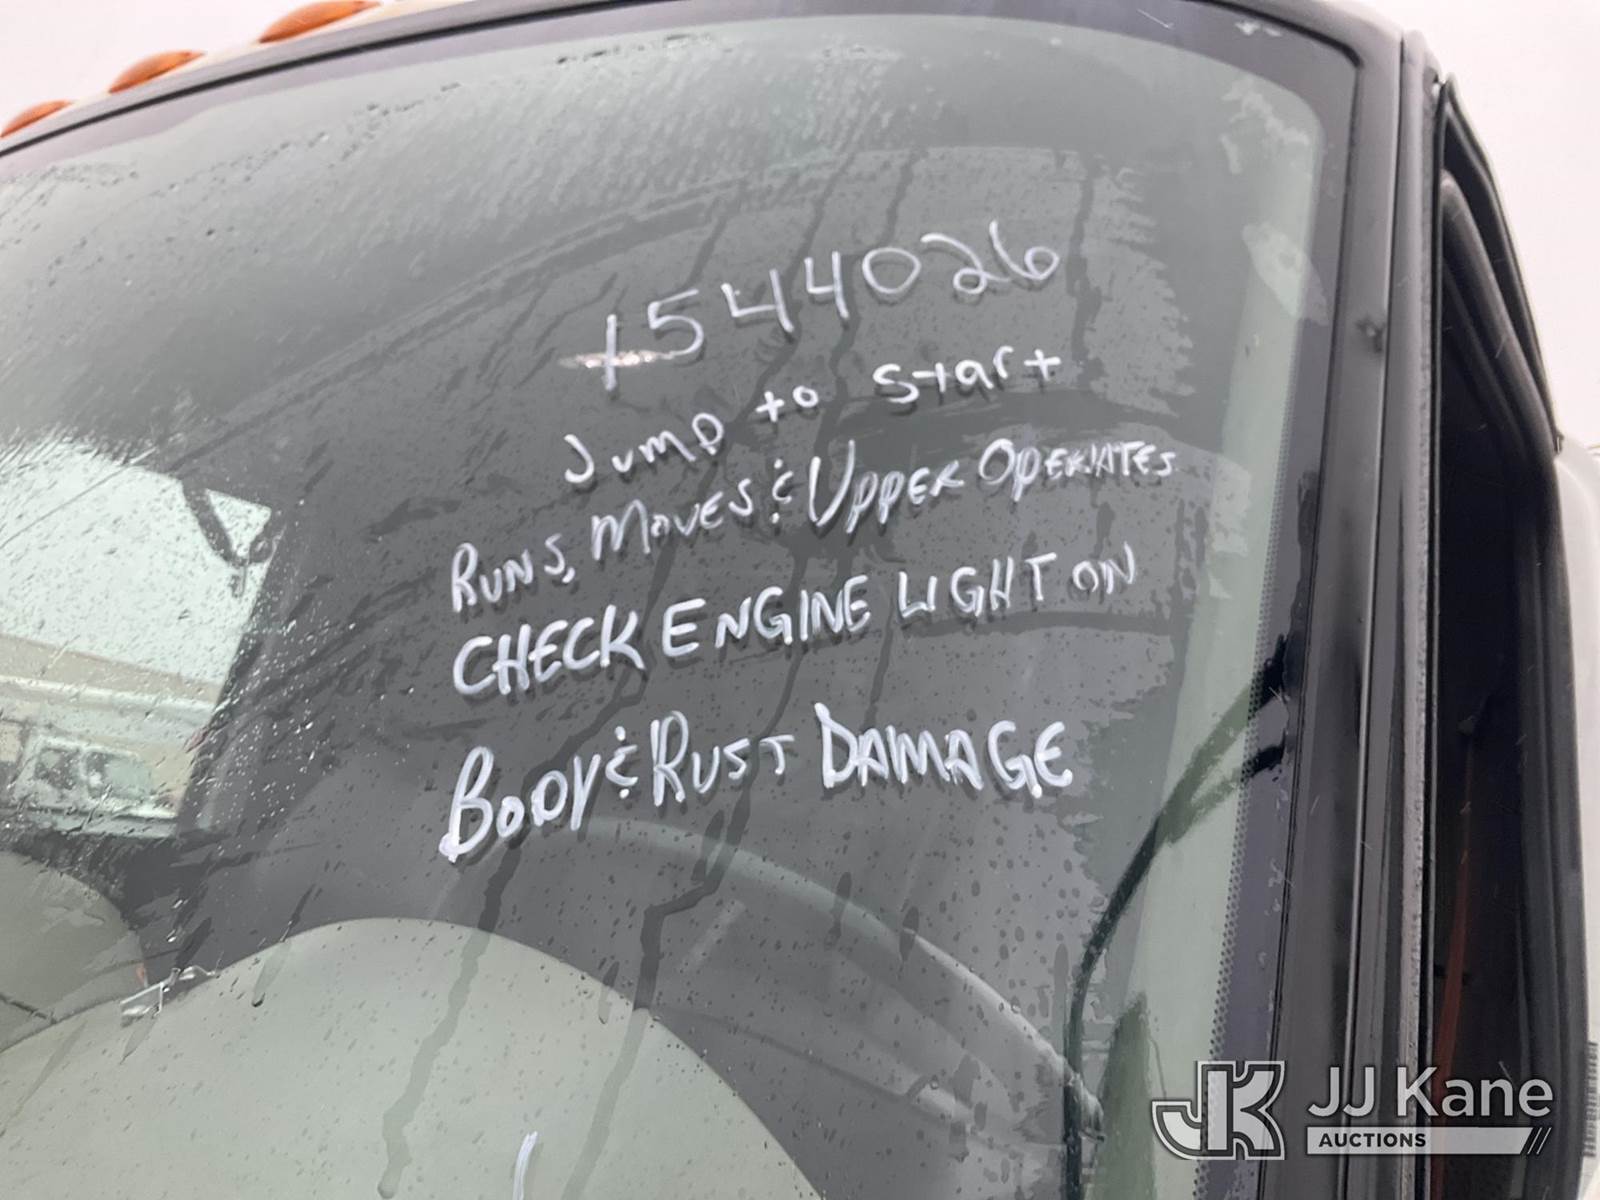 1544026
Jump to Start
RUNS, MOVES & UPPER OPERATES
CHECK ENGINE LIGHT ON
BODY & RUST DAMAGE
JK JJ Kane
AUCTIONS